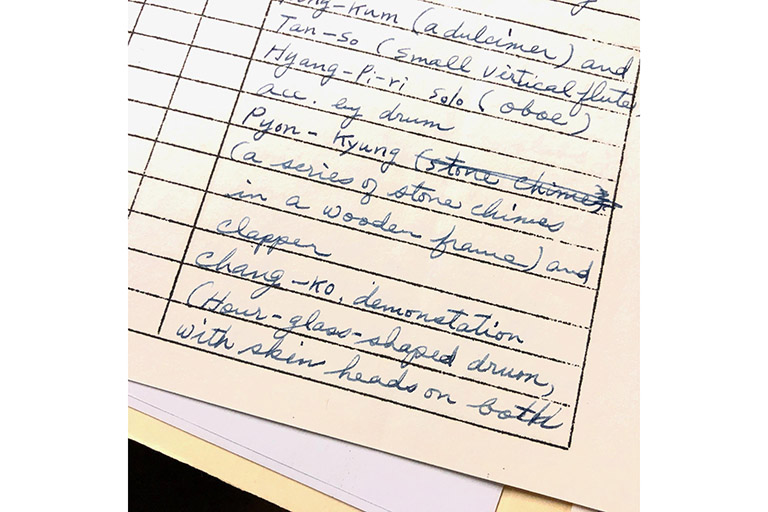 ng-Kum (a dulcimer) and
Tan-So (small vertical flute)
Hyang-Pi-ri solo (oboe)
acc. by drum
Pyon-Kyung (stone chimes)
(a series of stone chimes
in a wooden frame) and
clapper
Chang-Ko, demonstation
(Hour-glass-shaped drum,
with skin heads on both